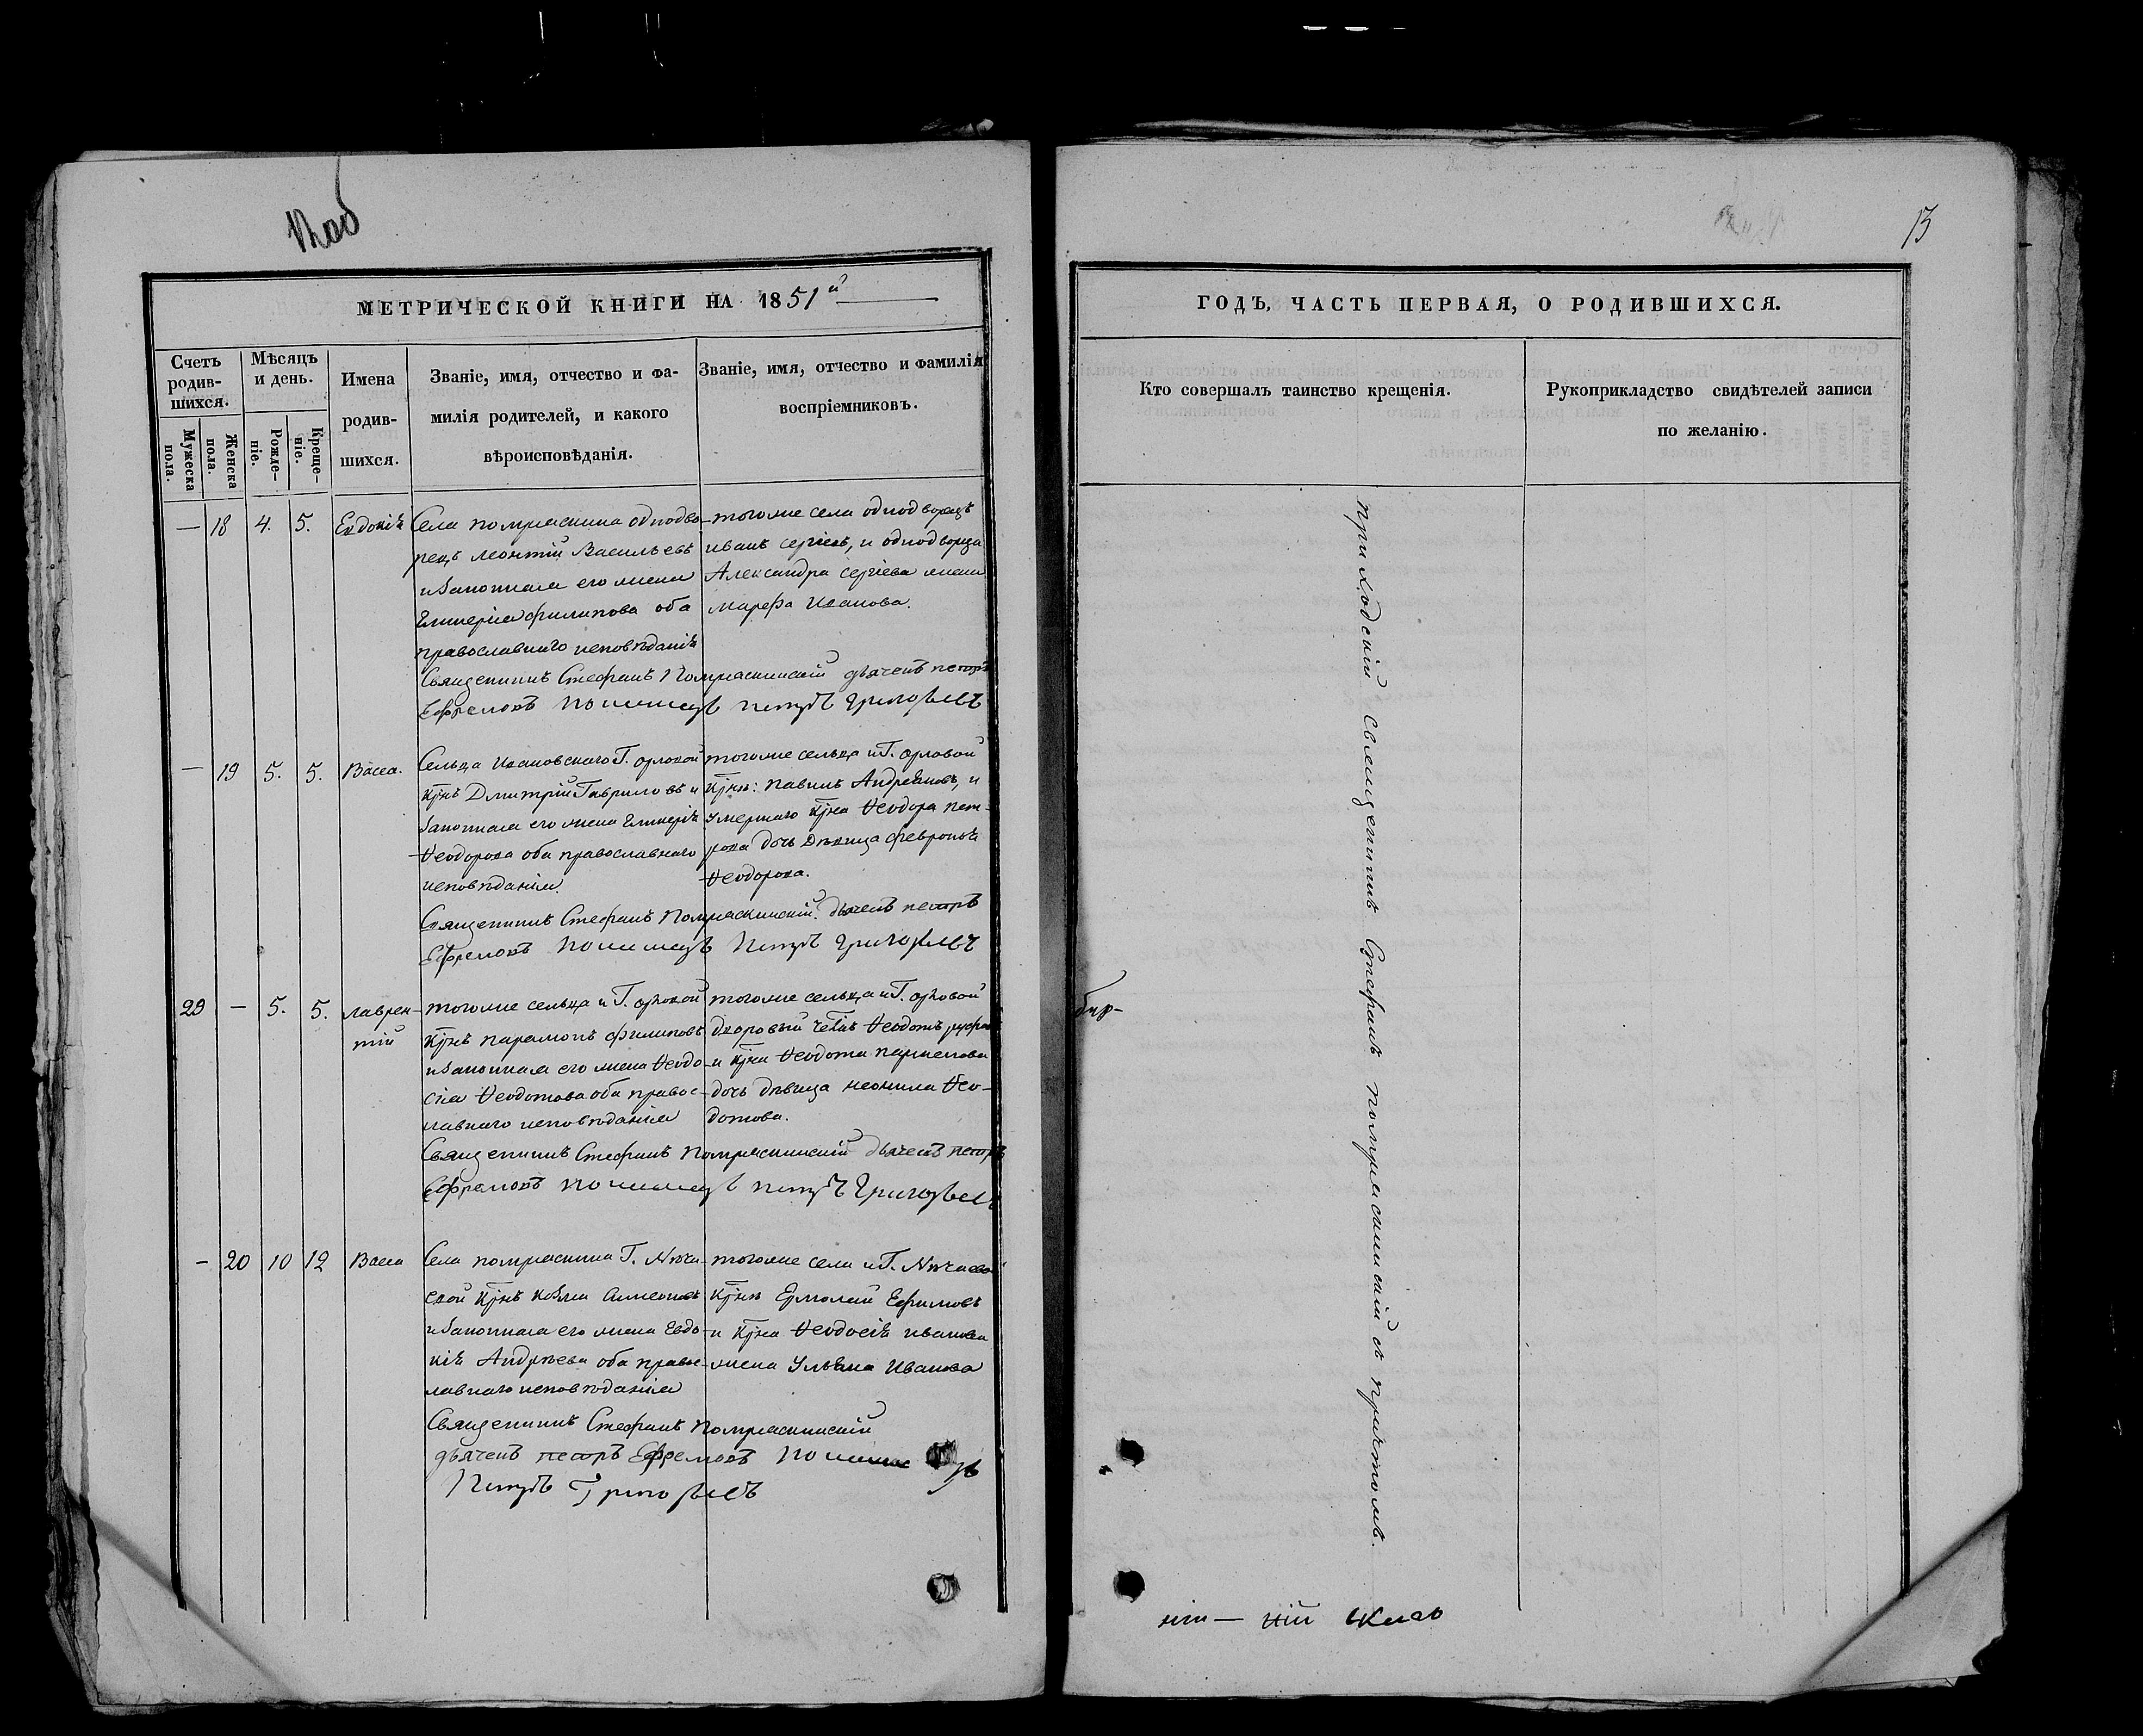 13
МЕТРИЧЕСКОЙ КНИГИ НА 1851й
Счетъ родив-шихся.
Мужеска пола.
Женска пола.
Мѣсяцъ и день.
Рожде-ніе.
Креще-ніе.
Имена
родив-
шихся.
Званіе, имя, отчество и фа-
милія родителей, и какого
вѣроисповѣданія.
Званіе, имя, отчество и фамилія
воспріемниковъ.
— 18 4. 5. Евдокія
Села потряскина одподво-
рецъ леонтій Васильевъ
и законная его жена
Гликерія филипова оба
православнаго исповѣданія
тогоже села однодворецъ
иванъ сергіевъ, и однодворца
Александра сергіева жена
марфа Иванова.
Священникъ Стефанъ Потряскинскій дьячекъ петръ
Ефремовъ пономарь петръ Григорьевъ
— 19 5. 5. Васса.
Сельца Ивановскаго Г. орловой
крнъ Дмитрій Гавриловъ и
законная его жена Гликерія
Ѳеодорова оба православнаго
исповѣданія.
тогоже сельца и Г. орловой
крнъ: павелъ Андреяновъ, и
умершаго крна Ѳеодора пет-
рова дочь дѣвица февронья
Ѳеодорова.
Священникъ Стефанъ Потряскинскій. дьячекъ петръ
Ефремовъ пономарь Петръ Григорьевъ
29 — 5. 5. лаврен-
тій
тогоже сельца и Г. орловой
крнъ парамонъ филиповъ
и законная его жена Ѳеодо-
сія Ѳеодотова оба правос-
лавнаго исповѣданія
тогоже сельца и Г. орловой
дворовый челкъ Ѳеодотъ
и крна Ѳеодота
дочь дѣвица неонила Ѳео-
дотова.
Священникъ Стефанъ Потряскинскій дьячекъ петръ
Ефремовъ пономарь петръ Григорьевъ
— 20 10 12 Васса
Села потряскина Г. Нѣча-
евой крнъ козма
и законная его жена Евдо-
кія Андрѣева оба правос-
лавнаго исповѣданія
тогоже села и Г. Нѣчаевой
крнъ Ермолай Ефимовъ
и крна Ѳеодосія иванова
жена Ульяна Иванова
Священникъ Стефанъ Потряскинскій
дьячекъ петръ Ефремовъ пономарь
Петръ Григорьевъ
ГОДЪ, ЧАСТЬ ПЕРВАЯ, О РОДИВШИХСЯ.
Кто совершалъ таинство крещенія.
Рукоприкладство свидѣтелей записи
по желанію.
приходскій священникъ Стефанъ потряскинскій съ причтомъ.